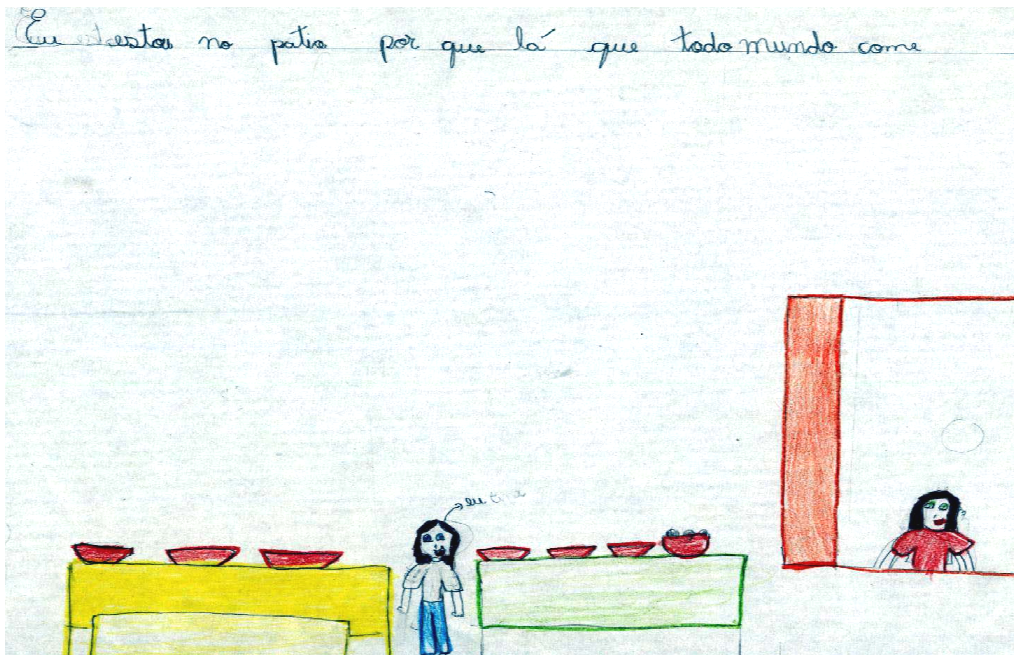 Eu estou no pátio por que lá que todo mundo come
eu